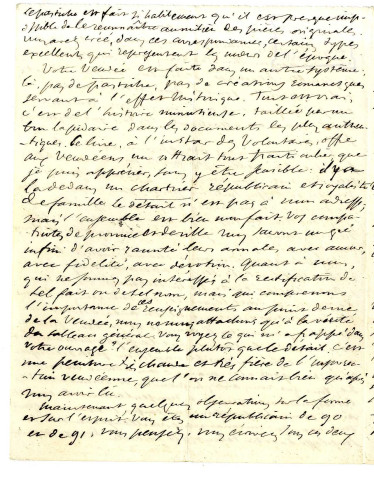 Le pastiche est fait si habilement qu'il est presque impos-
sible de le reconnaître au milieu des pièces originales.
Vous avez créé, dans ces correspondances, certains types
excellents qui représentent les mœurs de l'époque.
Votre Vendée est faite dans un autre système.
là, pas de pastiche, pas de créations romanesques
servant à l'effet historique. Tout est vrai,
c'est de l'histoire minutieuse, taillée par un
bon lapidaire dans les documents les plus authen-
tiques. Le livre, à l'instar des Volontaires, offre
aux Vendéens un attrait tout particulier, que
je puis apprécier, sans y être sensible. Il y a
là dedans un chartrier républicain et royaliste
de famille le détail n'est pas à mon adresse,
mais l'ensemble est bien mon fait. Vos compa-
triotes de province et de ville vous sauront un gré
infini d'avoir raconté leurs annales, avec amour,
avec fidélité, avec dévotion. Quant à nous,
qui ne sommes pas intéressés à la rectification de
tel fait ou de tel nom, mais qui comprenons
l'importance de ces enseignements au point de vue
de la Vendée, nous nous attachons qu'à la vérité
du tableau général. Vous voyez ce qui m'a frappé dans
votre ouvrage l'ensemble plutôt que le détail. C'est
une peinture très chaude et très fière de l'insurrec-
tion vendéenne, que l'on ne connaît bien qu'après
vous avoir lu.
Maintenant, quelques observations sur la forme
et sur l'esprit. Vous êtes un républicain de 90
et de 91, vous pensez, vous écrivez sous ces deux